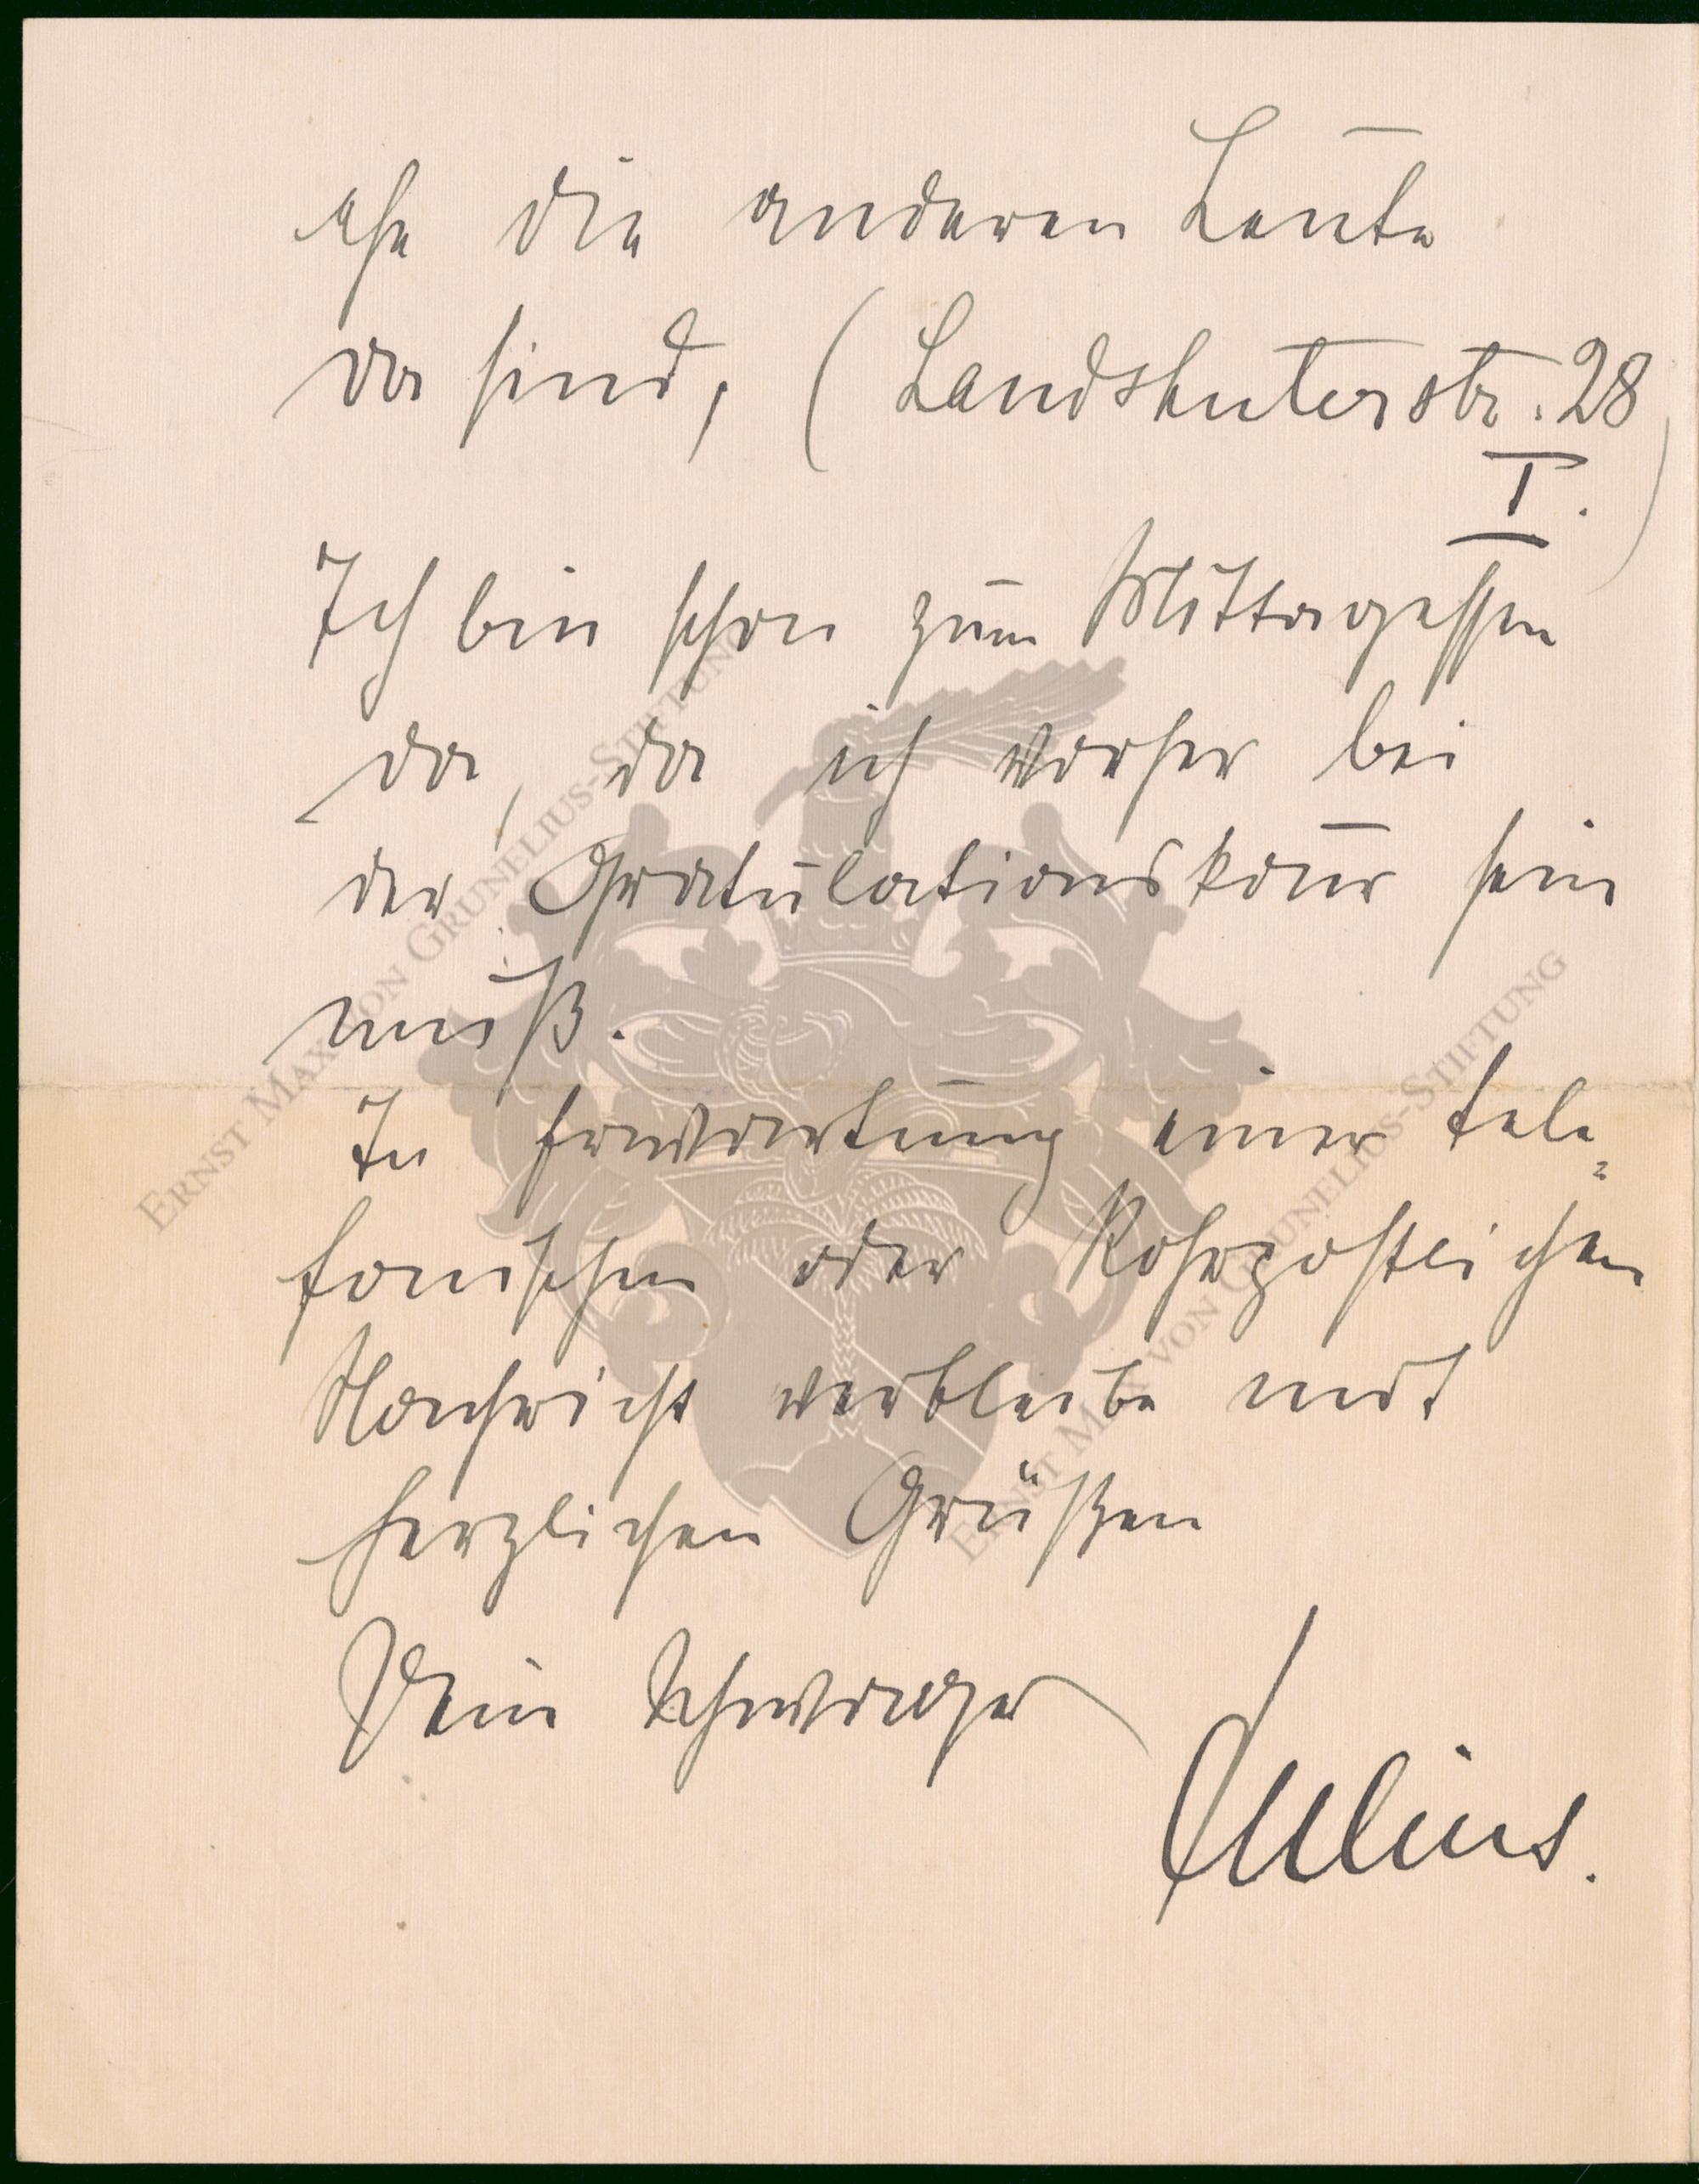 ehe die anderen Leute
da sind, (Landshuterstr. 28
I.)
Ich bin schon zum Mittagessen
da, da ich vorher bei
der Gratulationskour sein
muß.
In Erwartung einer tele=
fonischen oder Rohrpostlichen
Nachricht verbleibe mit
herzlichen Grüßen
Dein Schwager
Julius.
ERNST MAX VON GRUNELIUS-STIFTUNG
ERNST MAX VON GRUNELIUS-STIFTUNG